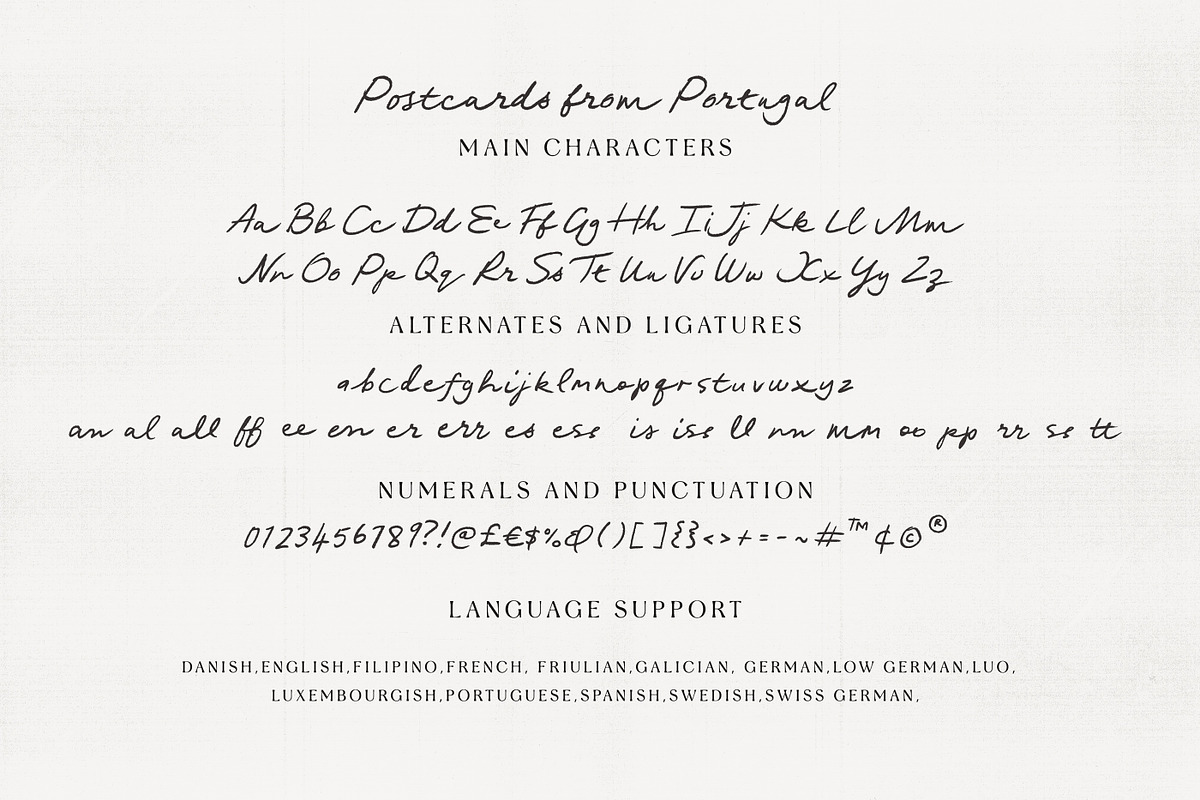 Postcards from Portugal
MAIN CHARACTERS
Aa Bb Cc Dd Ee Ff Gg Hh Ii Jj Kk Ll Mm
Nn Oo Pp Qq Rr Ss Tt Uu Vv Ww Xx Yy Zz
ALTERNATES AND LIGATURES
abcdefghijklmnopqrstuvwxyz
an al all ff ee en er err es ess is iss ll nn mm oo pp rr ss tt
NUMERALS AND PUNCTUATION
0123456789?!@£€$%&()[]{}<>+=-~#™¢©®
LANGUAGE SUPPORT
DANISH,ENGLISH,FILIPINO,FRENCH, FRIULIAN,GALICIAN, GERMAN,LOW GERMAN,LUO,
LUXEMBOURGISH,PORTUGUESE,SPANISH,SWEDISH,SWISS GERMAN,